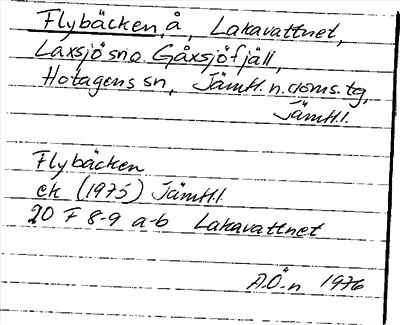 Flybäcken, å, Lakavattnet,
Laxsjösna Gåxsjöfjäll,
Hotagens sn, Jämtl. n. doms. tg,
Jämtl. l.
Flybäcken
ek (1975) Jämtl. l
20 F 8-9 a-b Lakavattnet
A.Ö-n 1976